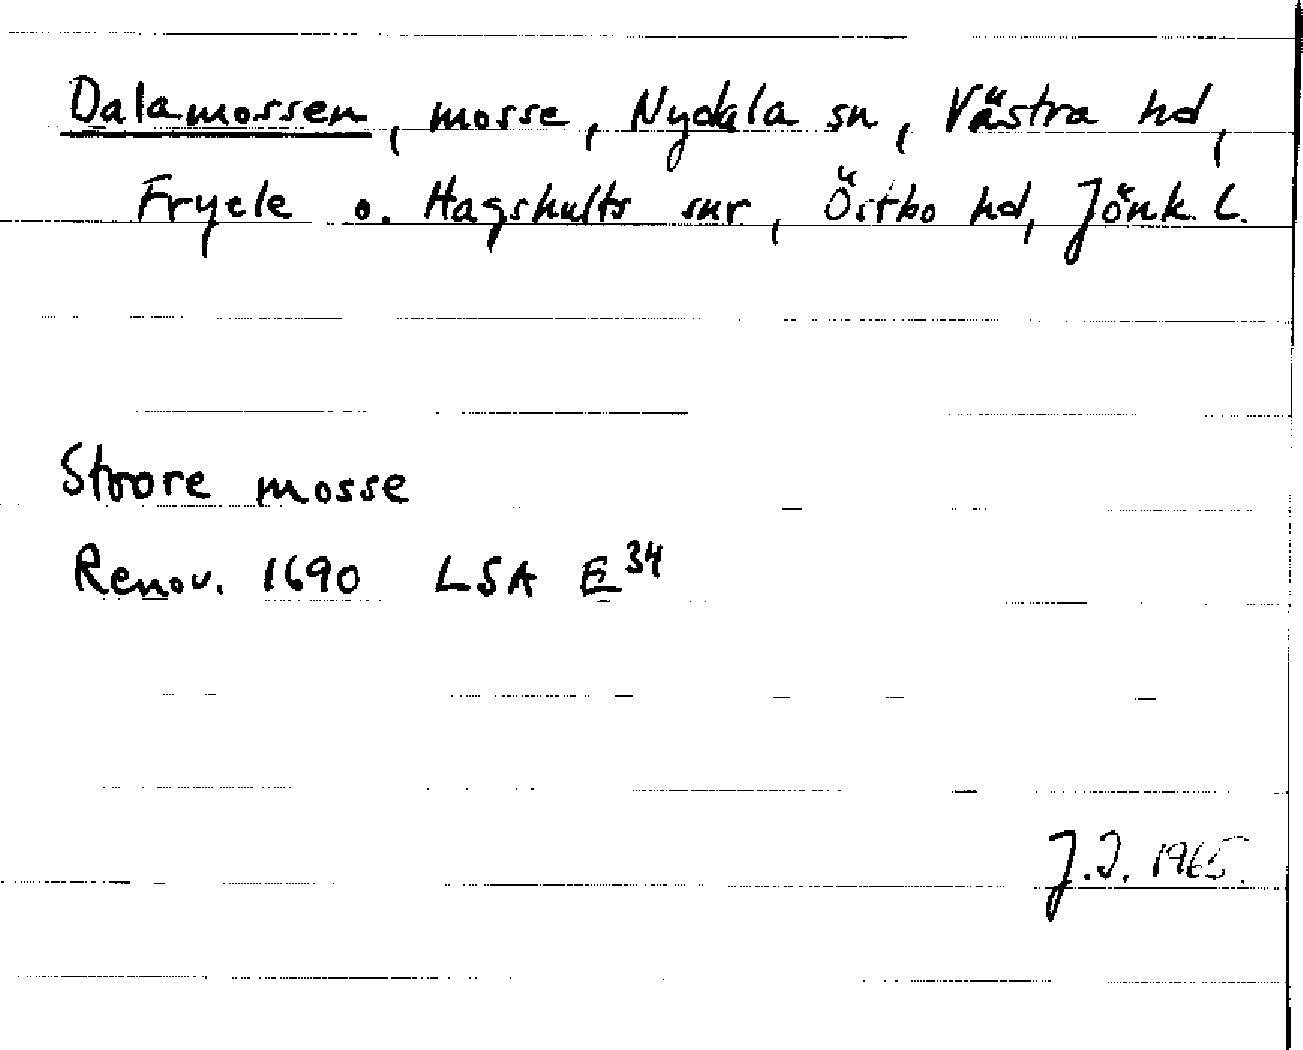 Dalamossen, mosse, Nydala sn, Västra hd,
Fryele o. Hagshults snr, Östbo hd, Jönk. L.
Stoore mosse
Renov. 1690 LSA E³⁴
J.I. 1965.